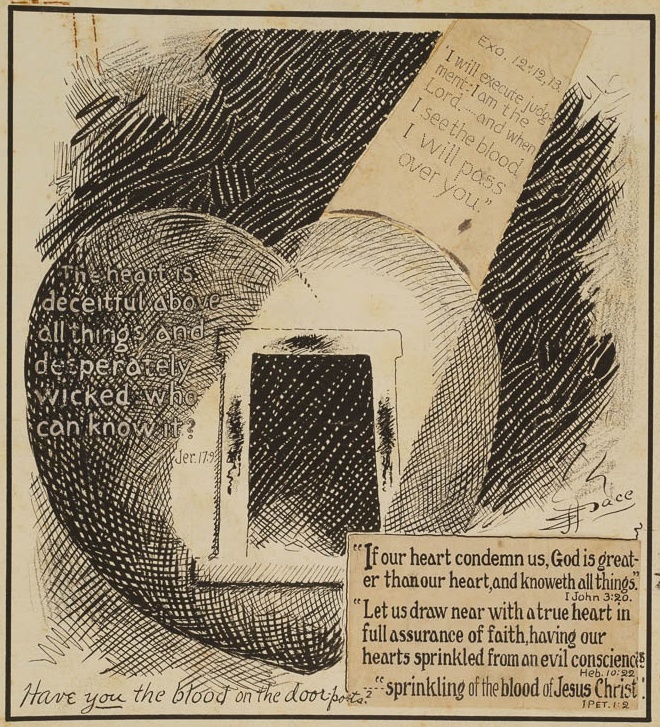 Exo. 12:12,13.
"I will execute judg-
ment: I am the
Lord....and when
I see the blood
I will pass
over you."
The heart is
deceitful above
all things and
desperately
wicked who
can know it?
Jer. 17:9
Pace
"If our heart condemn us, God is great-
er than our heart, and knoweth all things."
I John 3:20.
"Let us draw near with a true heart in
full assurance of faith, having our
hearts sprinkled from an evil conscience
Heb. 10:22
"sprinkling of the blood of Jesus Christ".
I PET. 1:2
Have you the blood on the door posts?